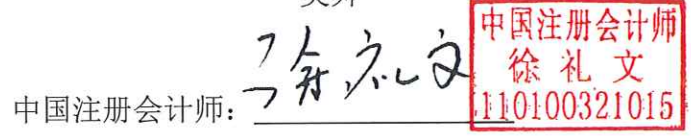 中国注册会计师：徐礼文
中国注册会计师
徐礼文
110100321015